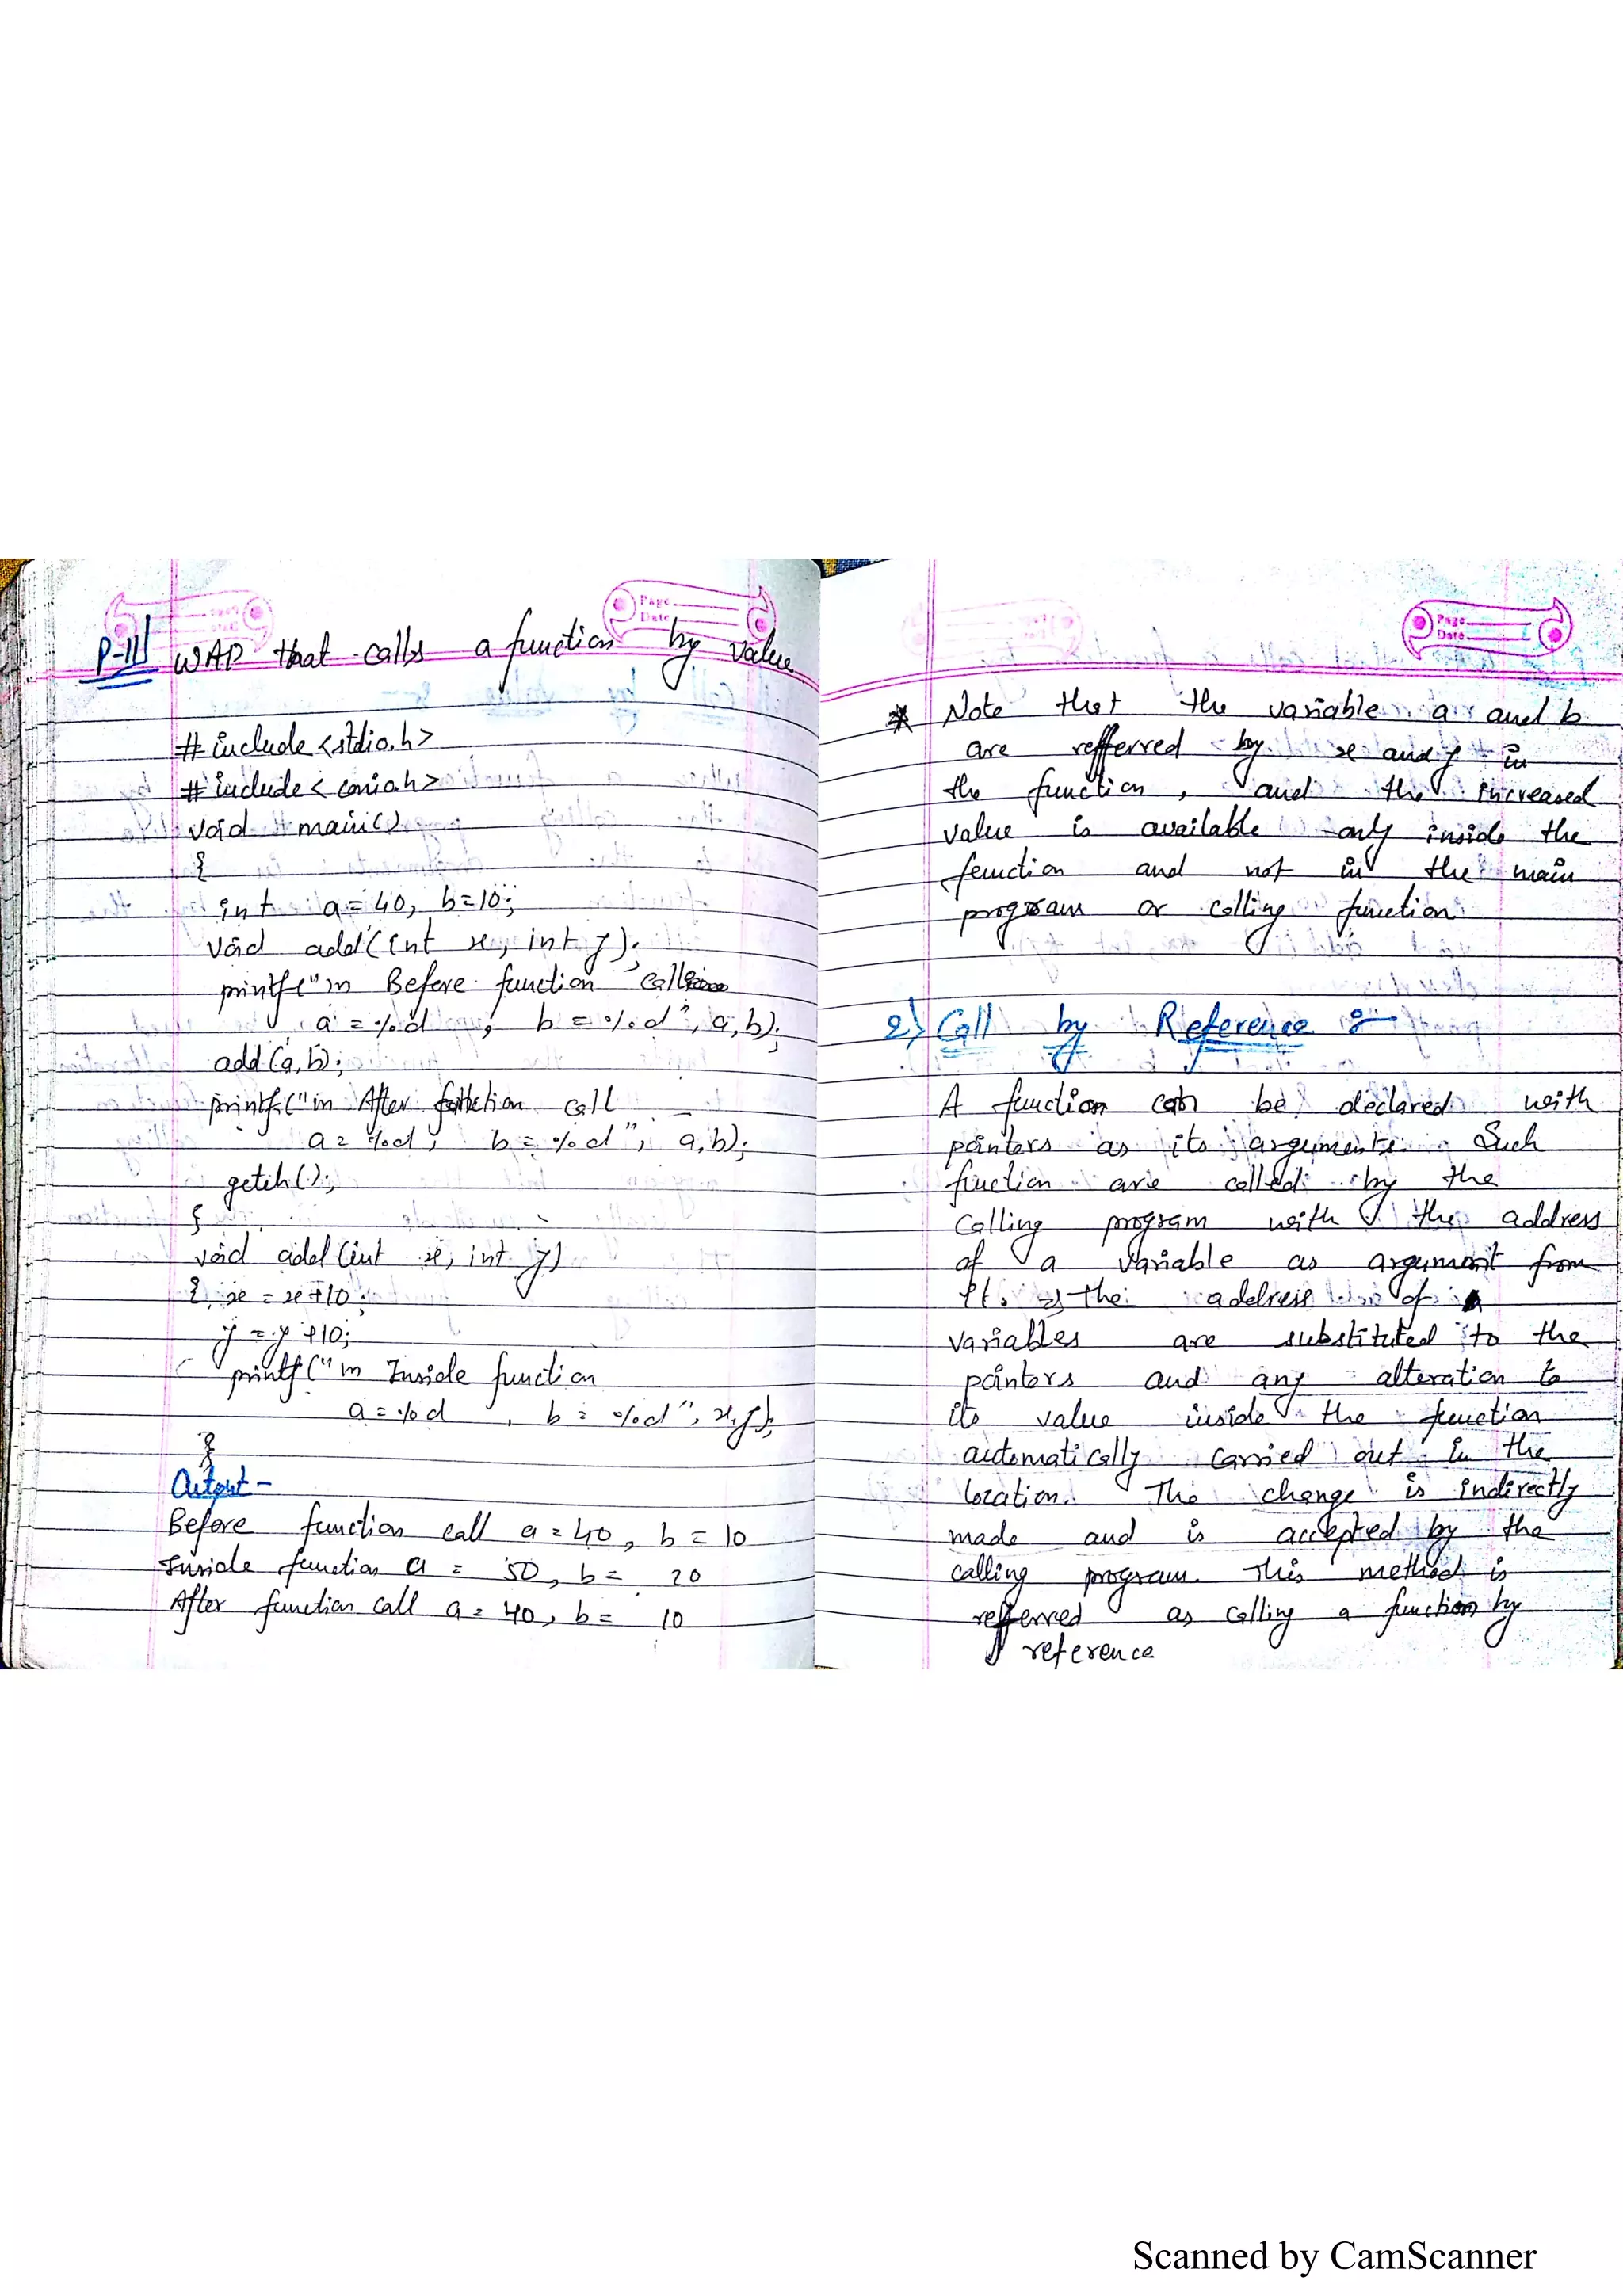 Page
Date
P-11 WAP that calls a function by value
#include <stdio.h>
#include < conio.h>
void main()
{
int a=40, b=10;
void add(int x, int y);
printf("\n Before function call
a = %d , b = %d", a,b);
add (a,b);
printf("\n After function call
a = %d, b = %d", a,b);
getch();
}
void add (int x, int y)
{ x = x+10;
y = y+10;
printf("\n Inside function
a = %d , b = %d", x,y);
}
Output -
Before function call a = 40, b = 10
Inside function a = 50, b = 20
After function call a = 40, b = 10
Page
Date
* Note that the variable a and b
are refferred by x and y in
the function, and the increased
value is available only inside the
function and not in the main
program or calling function
2) Call by Reference :-
A function can be declared with
pointers as its arguments. Such
function are called by the
calling program with the address
of a variable as argument from
it. => the address of
variables are substituted to the
pointers and any alteration to
its value inside the function
automatically carried out in the
location. The change is indirectly
made and is accepted by the
calling program. This method is
refferred as calling a function by
reference
Scanned by CamScanner